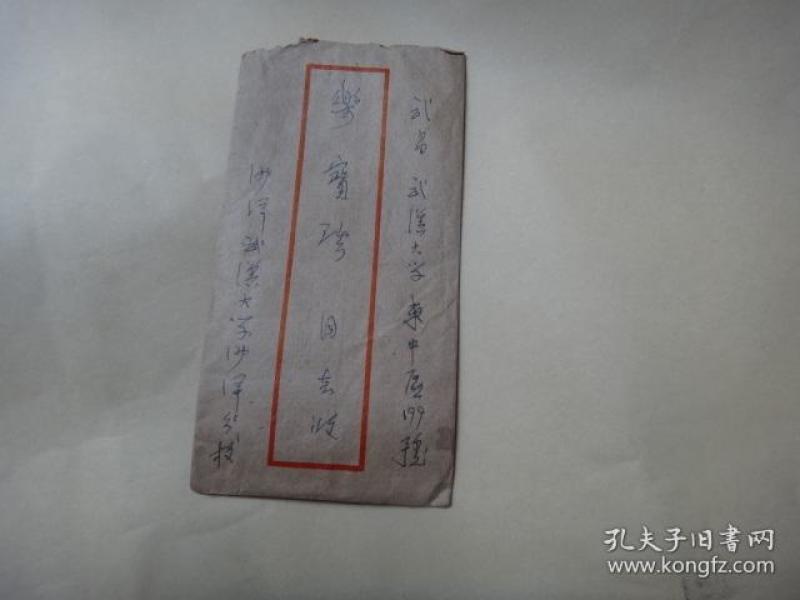 武昌 武漢大学東中区199號
樂寶璋 同志收
沙洋武漢大学沙洋分校
孔夫子旧書网
www.kongfz.com